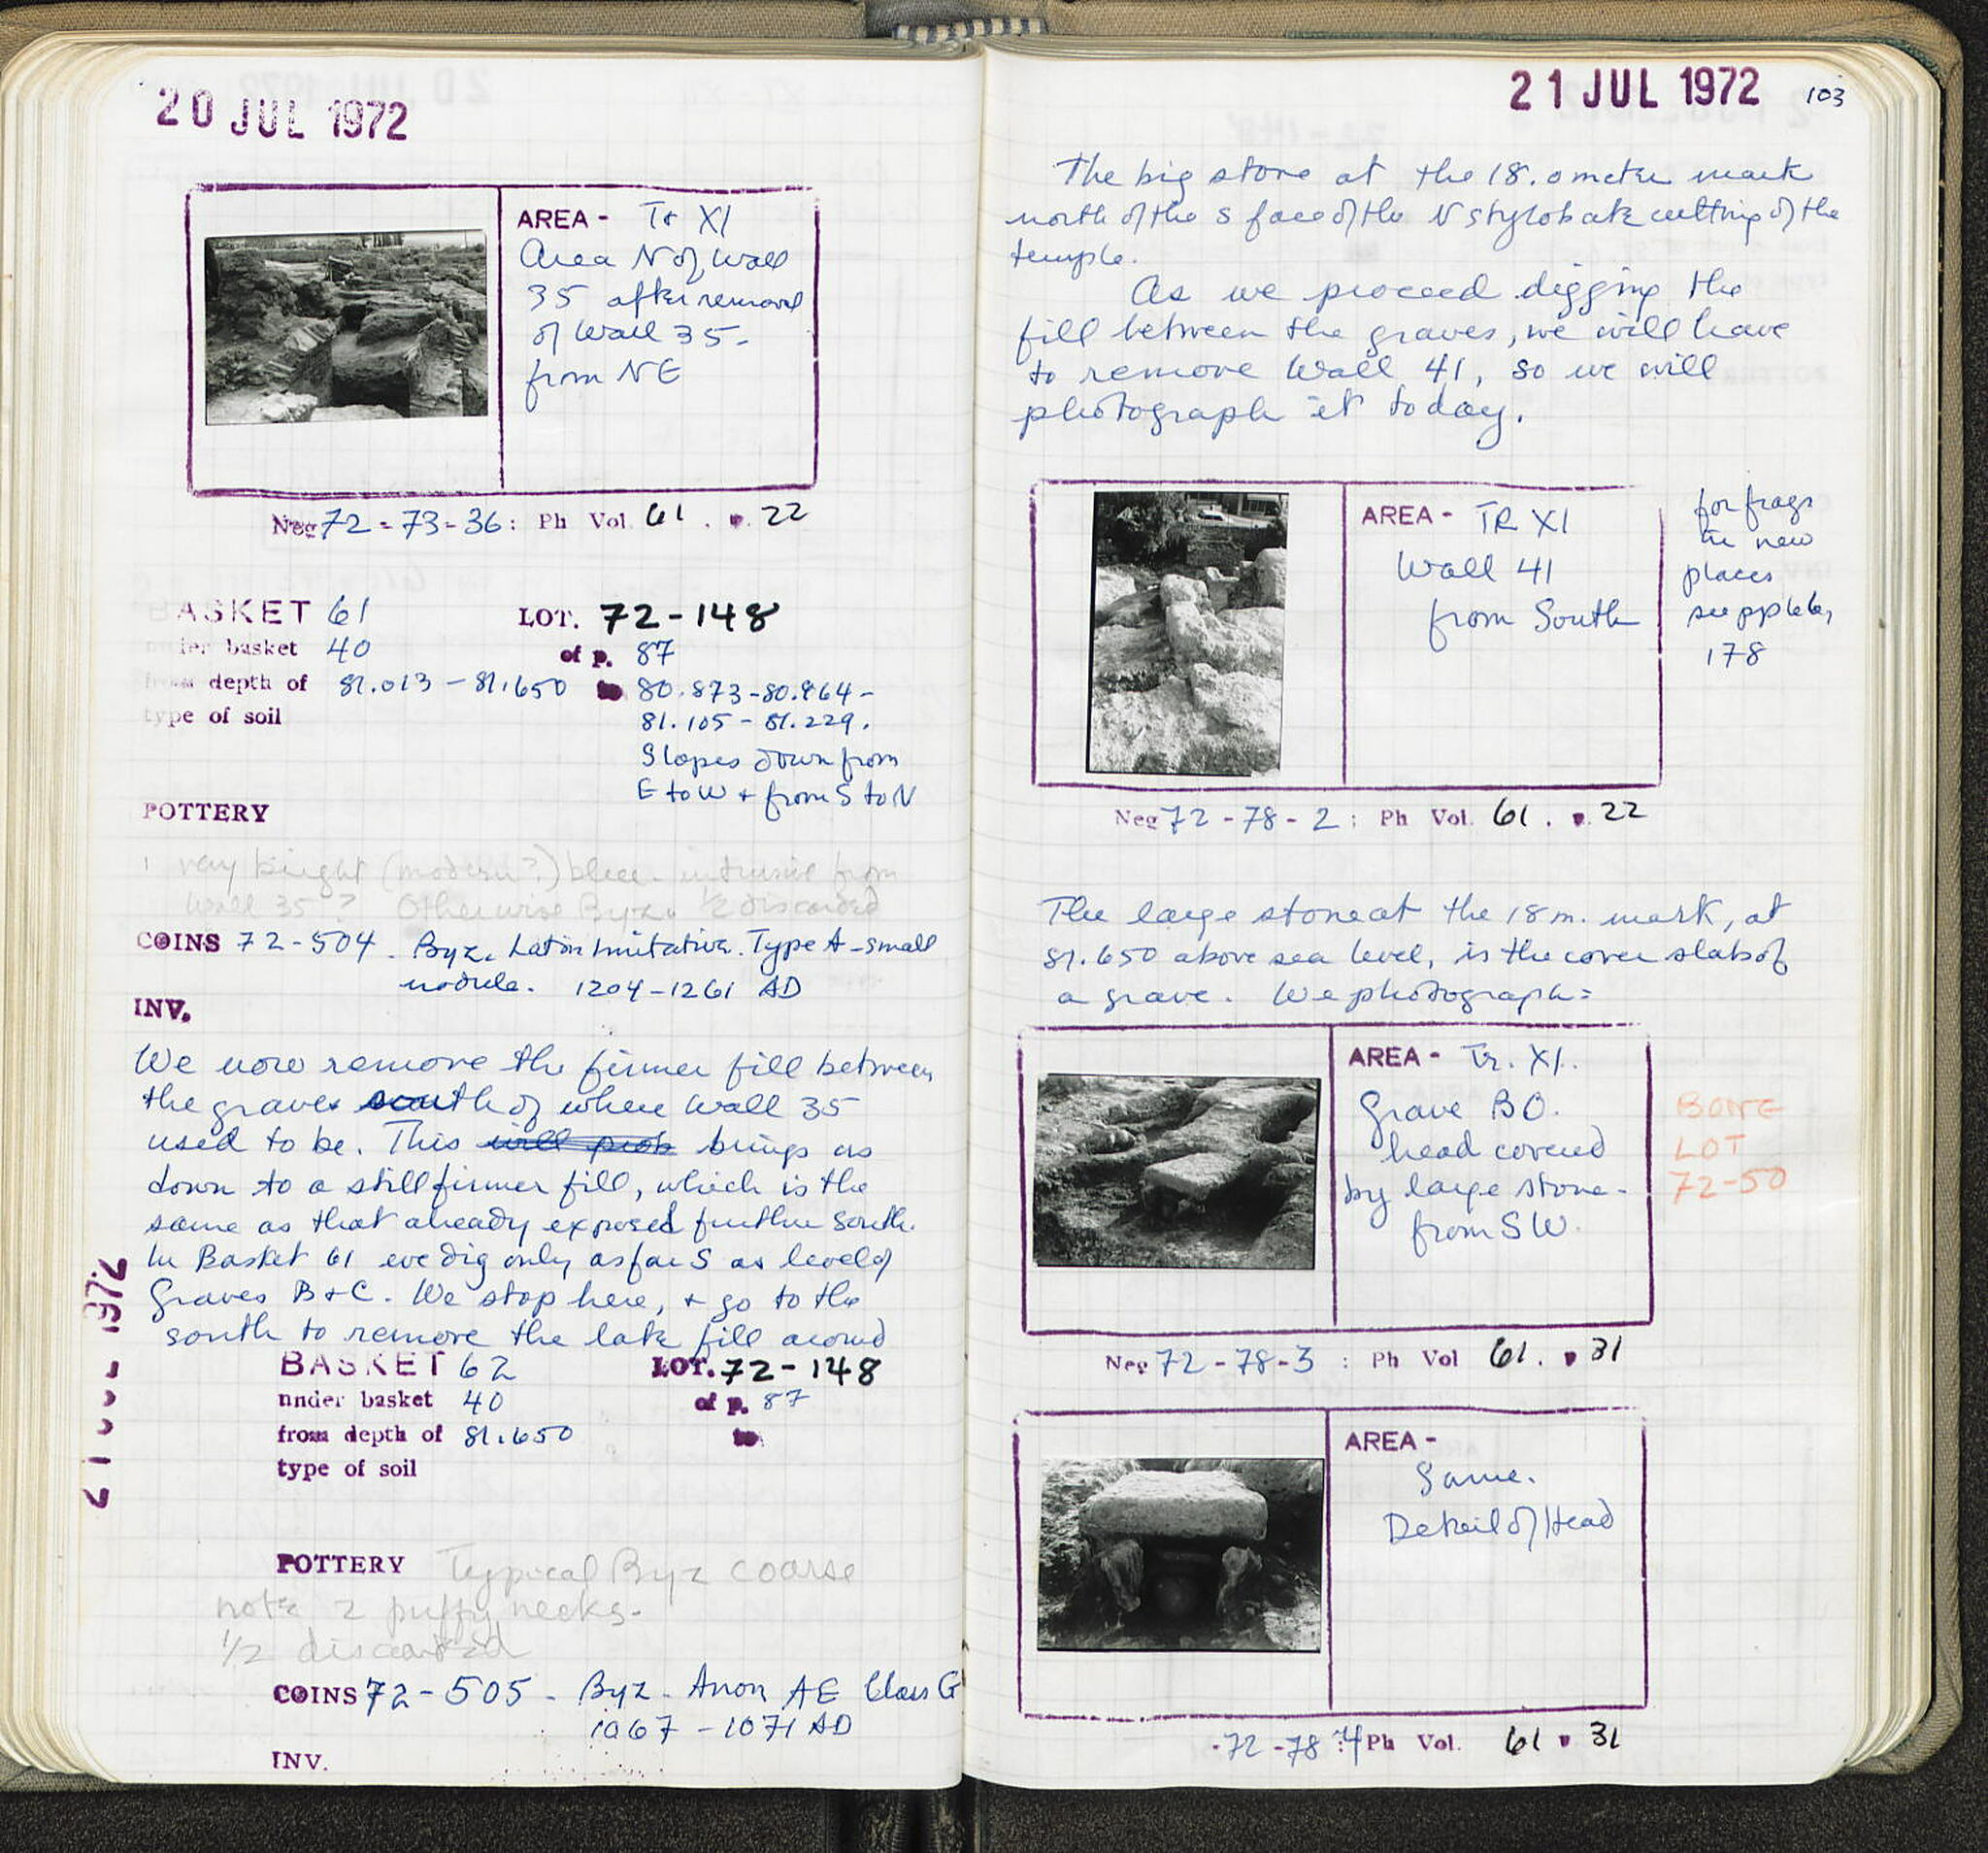 20 JUL 1972
AREA - Tr XI
Area N of Wall
35 after removal
of Wall 35-
from NE
Neg 72-73-36: Ph Vol. 61. p. 22
BASKET 61 LOT. 72-148
under basket 40 of p. 87
from depth of 81.013 - 81.650 to 80.873-80.964-
type of soil 81.105 - 81.229.
Slopes down from
E to W + from S to N
POTTERY
1 very bright (modern?) blue intrusive from
Wall 35? Otherwise Byz. 1/2 discarded
COINS 72-504. Byz. Latin Imitative. Type A-small
module. 1204-1261 AD
INV.
We now remove the firmer fill between
the graves south of where Wall 35
used to be. This will prob brings us
down to a still firmer fill, which is the
same as that already exposed further south.
In Basket 61 we dig only as far S as level of
Graves B+C. We stop here, + go to the
south to remove the late fill around
21 JUL 1972
BASKET 62 LOT. 72-148
under basket 40 of p. 87
from depth of 81.650 to
type of soil
POTTERY Typical Byz coarse
note 2 puffy necks-
1/2 discarded
COINS 72-505 - Byz - Anon AE Class G
1067 - 1071 AD
INV.
21 JUL 1972 103
The big stone at the 18.0 meter mark
north of the S face of the N stylobate cutting of the
temple.
As we proceed digging the
fill between the graves, we will have
to remove Wall 41, so we will
photograph it today.
AREA - TR XI
Wall 41
from South
for frags
in new
places
see pp 166,
178
Neg 72-78-2: Ph Vol. 61. p. 22
The large stone at the 18 m. mark, at
81.650 above sea level, is the cover slab of
a grave. We photograph:
AREA - Tr. XI.
Grave BO.
head covered
by large stone-
from SW.
BONE
LOT
72-50
Neg 72-78-3 : Ph Vol 61. p 31
AREA -
Same.
Detail of Head
-72-78:4 Ph Vol. 61 p 31